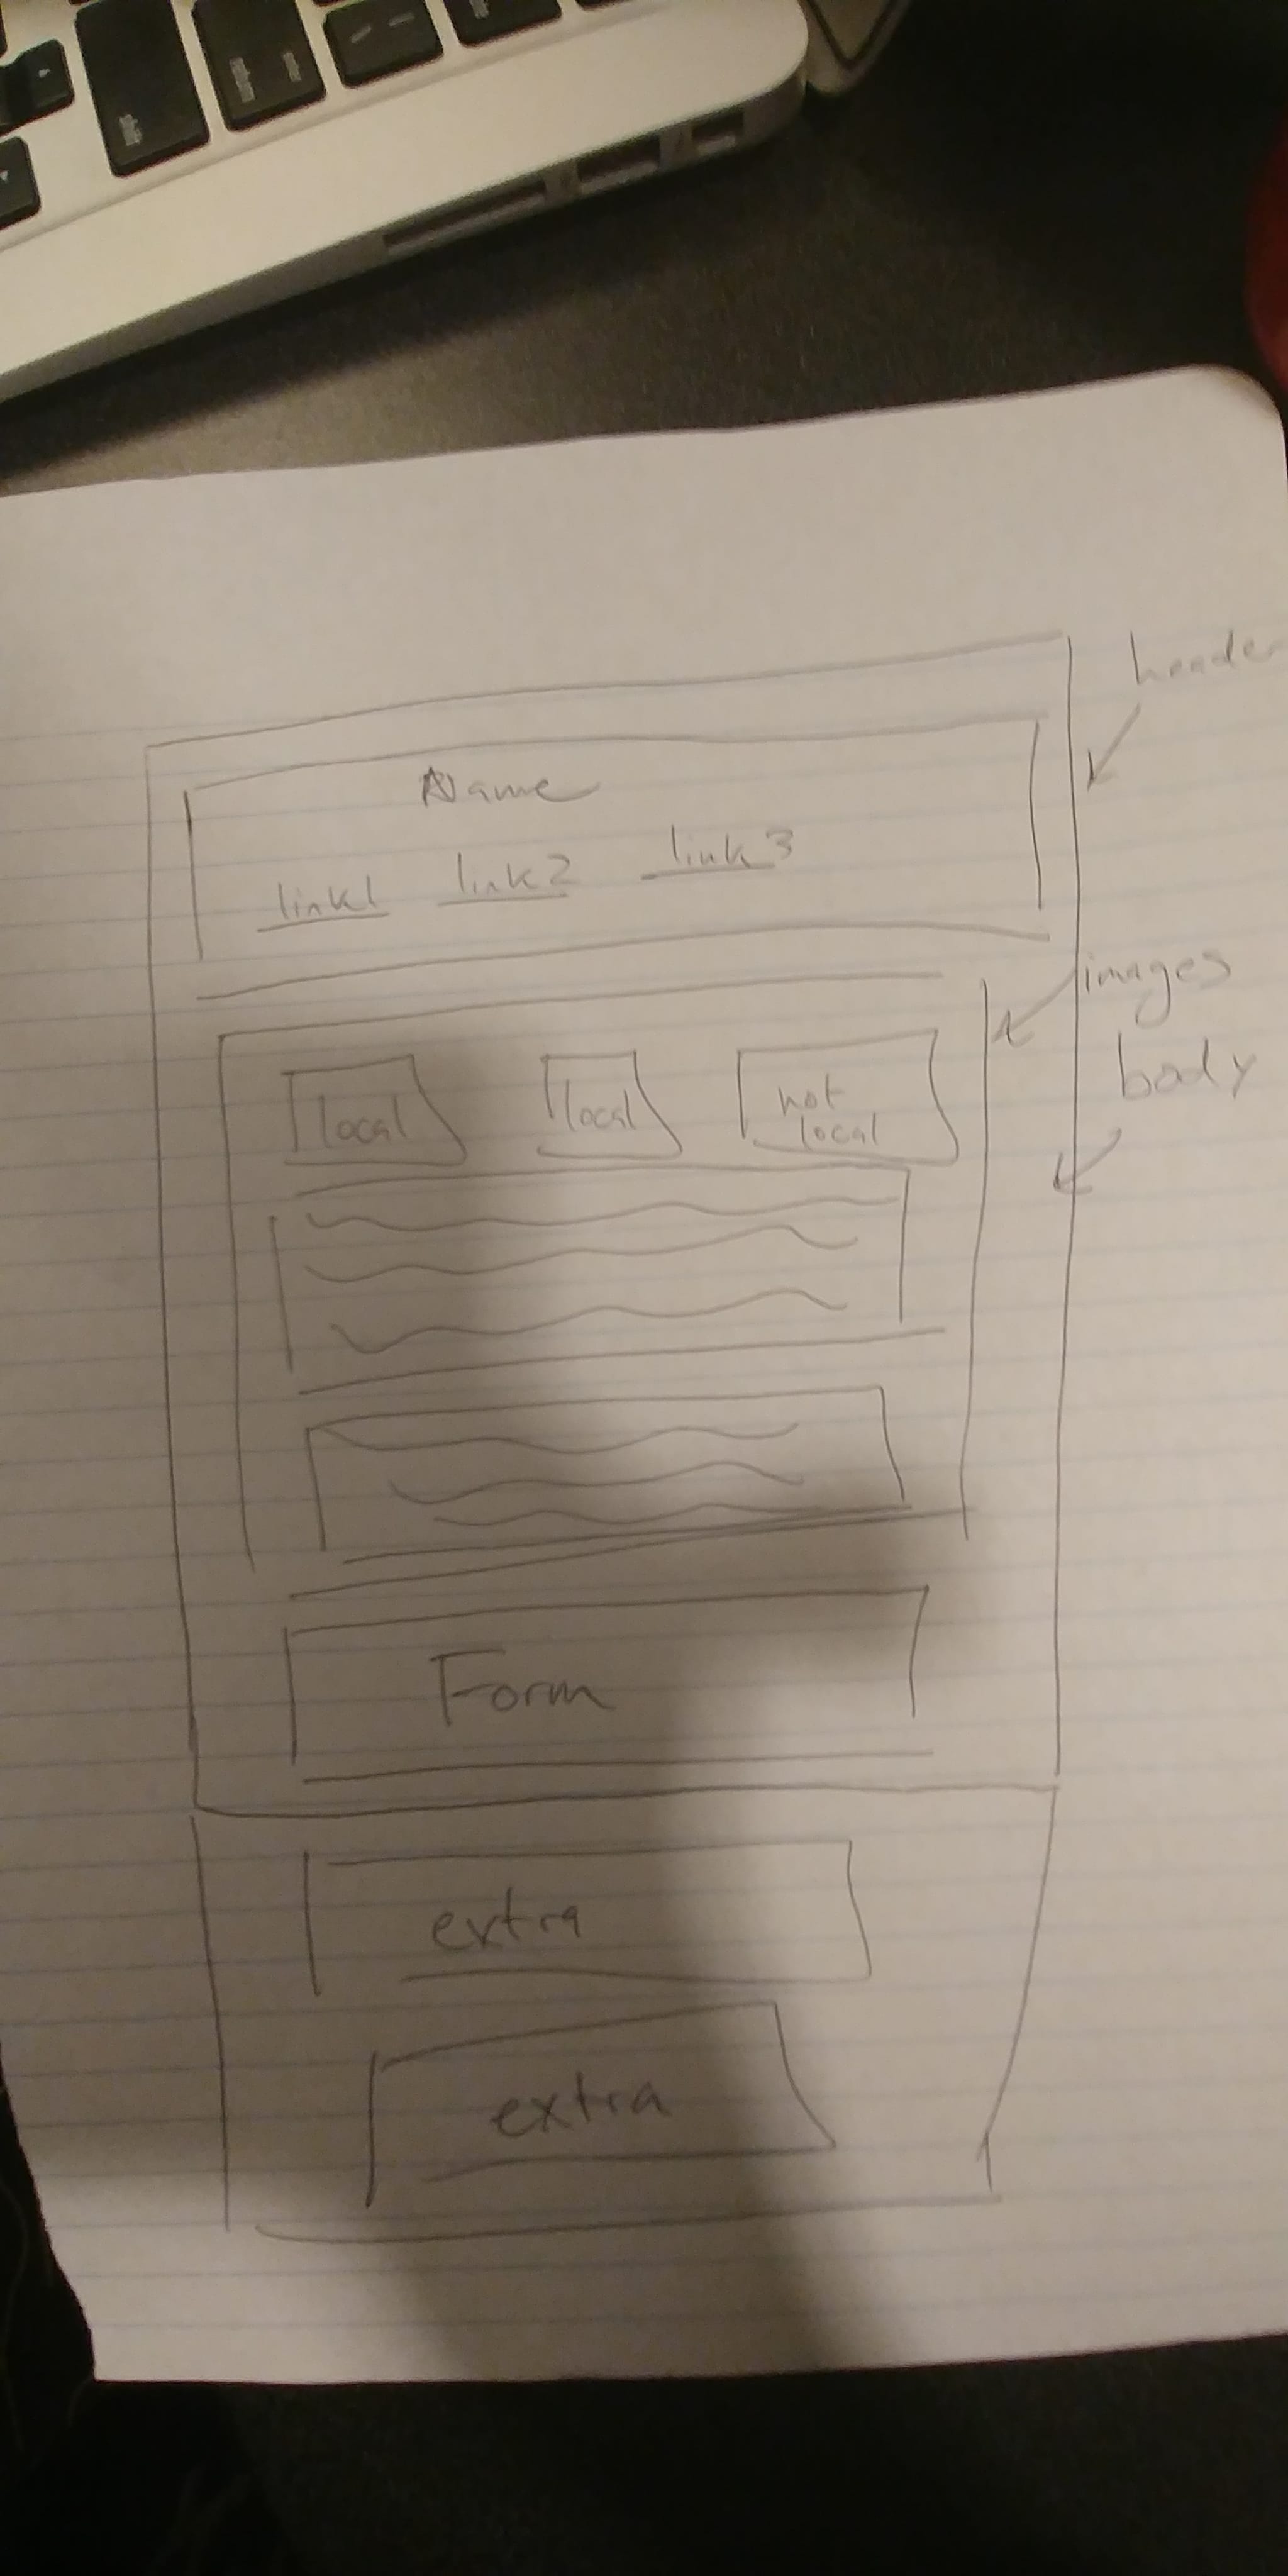 header
Name
link1 link2 link3
images
body
local local not
local
Form
extra
extra